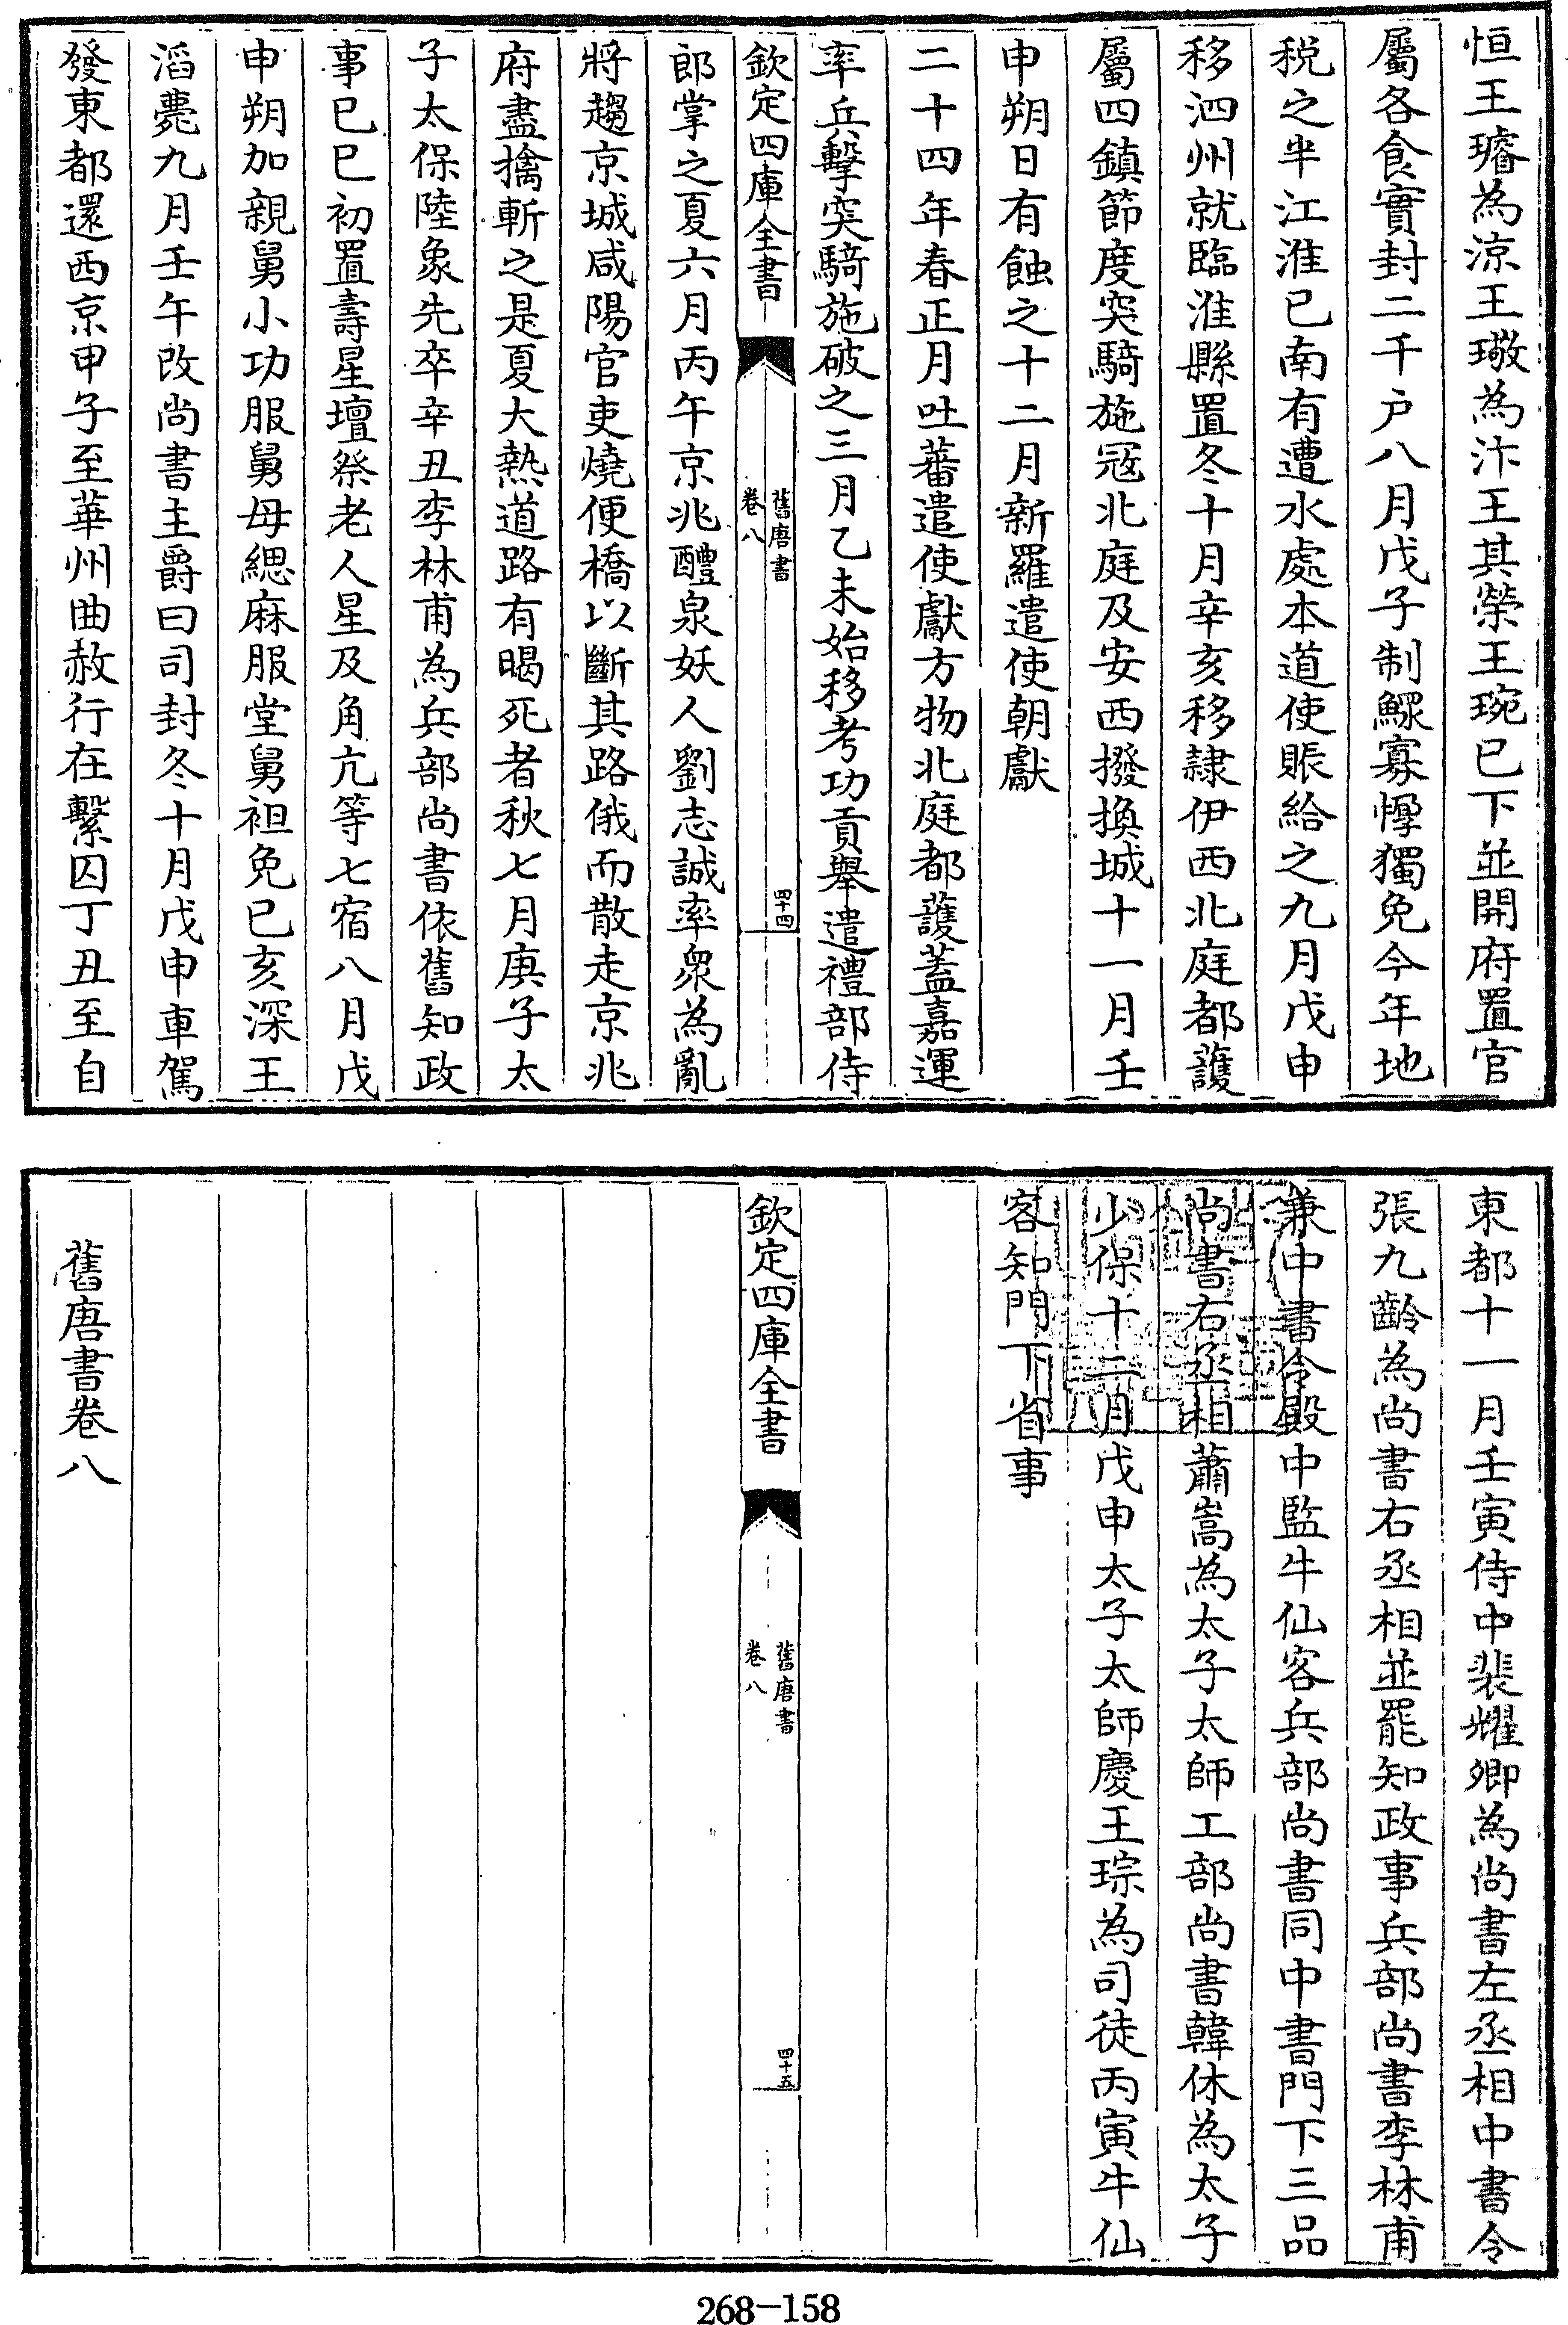 恒王璿為涼王璥為汴王其榮王琬已下並開府置官
屬各食實封二千户八月戊子制鰥寡惸獨免今年地
税之半江淮已南有遭水處本道使賑給之九月戊申
移泗州就臨淮縣置冬十月辛亥移隷伊西北庭都護
屬四鎮節度突騎施冦北庭及安西撥換城十一月壬
申朔日有蝕之十二月新羅遣使朝獻
二十四年春正月吐蕃遣使獻方物北庭都護蓋嘉運
率兵擊突騎施破之三月乙未始移考功貢舉遣禮部侍
欽定四庫全書
舊唐書
卷八
四十四
郎掌之夏六月丙午京兆醴泉妖人劉志誠率衆為亂
將趨京城咸陽官吏燒便橋以斷其路俄而散走京兆
府盡擒斬之是夏大熱道路有暍死者秋七月庚子太
子太保陸象先卒辛丑李林甫為兵部尚書依舊知政
事已巳初置壽星壇祭老人星及角亢等七宿八月戊
申朔加親舅小功服舅母緦麻服堂舅袒免已亥深王
滔薨九月壬午改尚書主爵曰司封冬十月戊申車駕
發東都還西京甲子至華州曲赦行在繫囚丁丑至自
東都十一月壬寅侍中裴耀卿為尚書左丞相中書令
張九齡為尚書右丞相並罷知政事兵部尚書李林甫
兼中書令殿中監牛仙客兵部尚書同中書門下三品
尚書右丞相蕭嵩為太子太師工部尚書韓休為太子
少保十二月戊申太子太師慶王琮為司徒丙寅牛仙
客知門下省事
欽定四庫全書
舊唐書
卷八
四十五
舊唐書卷八
268-158